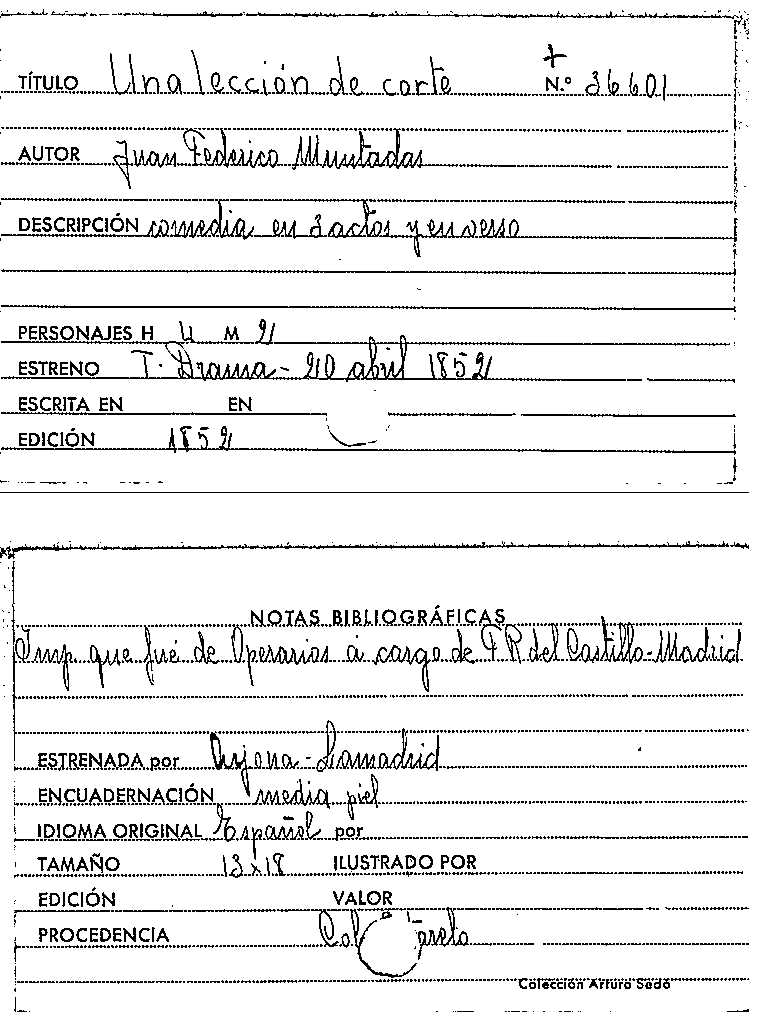 TÍTULO Una lección de corte + N.º 36601
AUTOR Juan Federico Muntadas
DESCRIPCIÓN comedia en 3 actos y en verso
PERSONAJES H 4 M 2
ESTRENO T. Drama - 20 abril 1852
ESCRITA EN EN
EDICIÓN 1852
NOTAS BIBLIOGRÁFICAS
Imp. que fué de Operarios á cargo de F R del Castillo - Madrid
ESTRENADA por Arjona - Lamadrid
ENCUADERNACIÓN media piel
IDIOMA ORIGINAL Español por
TAMAÑO 13 x 18 ILUSTRADO POR
EDICIÓN VALOR
PROCEDENCIA Col
Colección Arturo Sedó